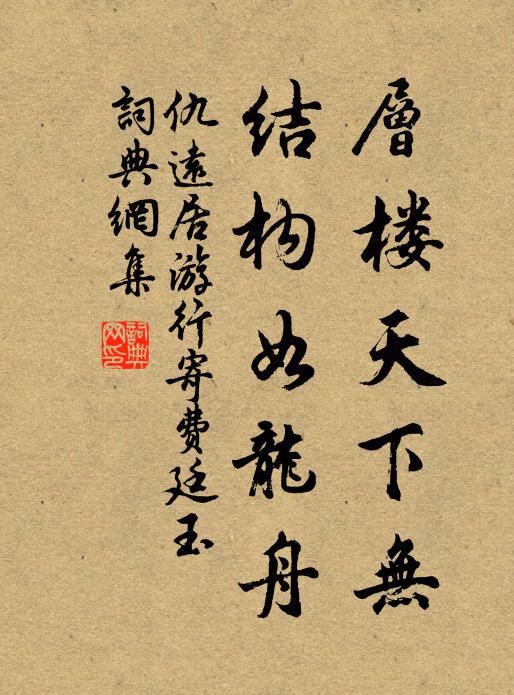 層楼天下無
结构如龍舟
仇遠居游行寄費廷玉
詞典網集
詞典網印